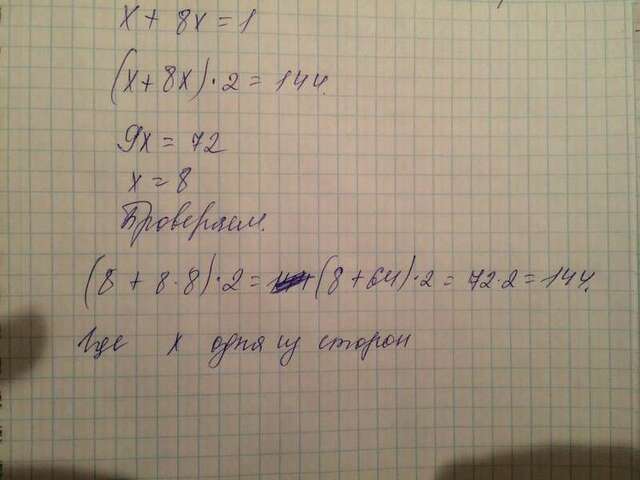 x + 8x = 1
(x + 8x) · 2 = 144
9x = 72
x = 8
Проверяем:
(8 + 8 · 8) · 2 = (8 + 64) · 2 = 72 · 2 = 144
где x одна из сторон